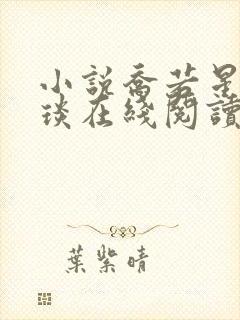 小說喬若星
琰在綫閱讀
葉紫晴